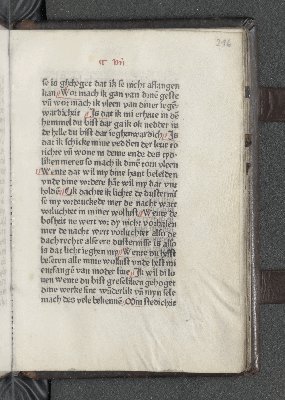 216
so is ghehoget dat ik se nicht aflangen
kan Wor mach ik gan van dinē geste
vn̄ wor mach ik vleen van diner iegē
wardicheit Is dat ik mi erheue in dē
hemmel du bist dar ga ik ok nedder in
de helle du bist dar ieghenwardich Is
dat ik schicke mine vedderen der
richte vn̄ wone in deme ende des
likenmeres so mach ik dinē torn vleen
Wente dat wil my dine hant beleiden
vnde dine vordere hāt wil my dar vnt
holdē Ok dachte ik lichte de dusternis
se my vordruckede mer de nacht wart
vorluchtet in miner wollust Wente de
bosheit ne wert vor dy nicht vorholen
mer de nacht wert vorluchtet also de
dach rechte alse ere dusternisse is also
is dat licht ieghen my Wente du hefst
beseten alle mine wollust vnde hefst mi
entfangē van moder liue Ik wil di lo
uen wente du bist greseliken ghehoget
dine werke sint wūderlik vn̄ myn sele
mach des vele bekennē Gōm stedicheit